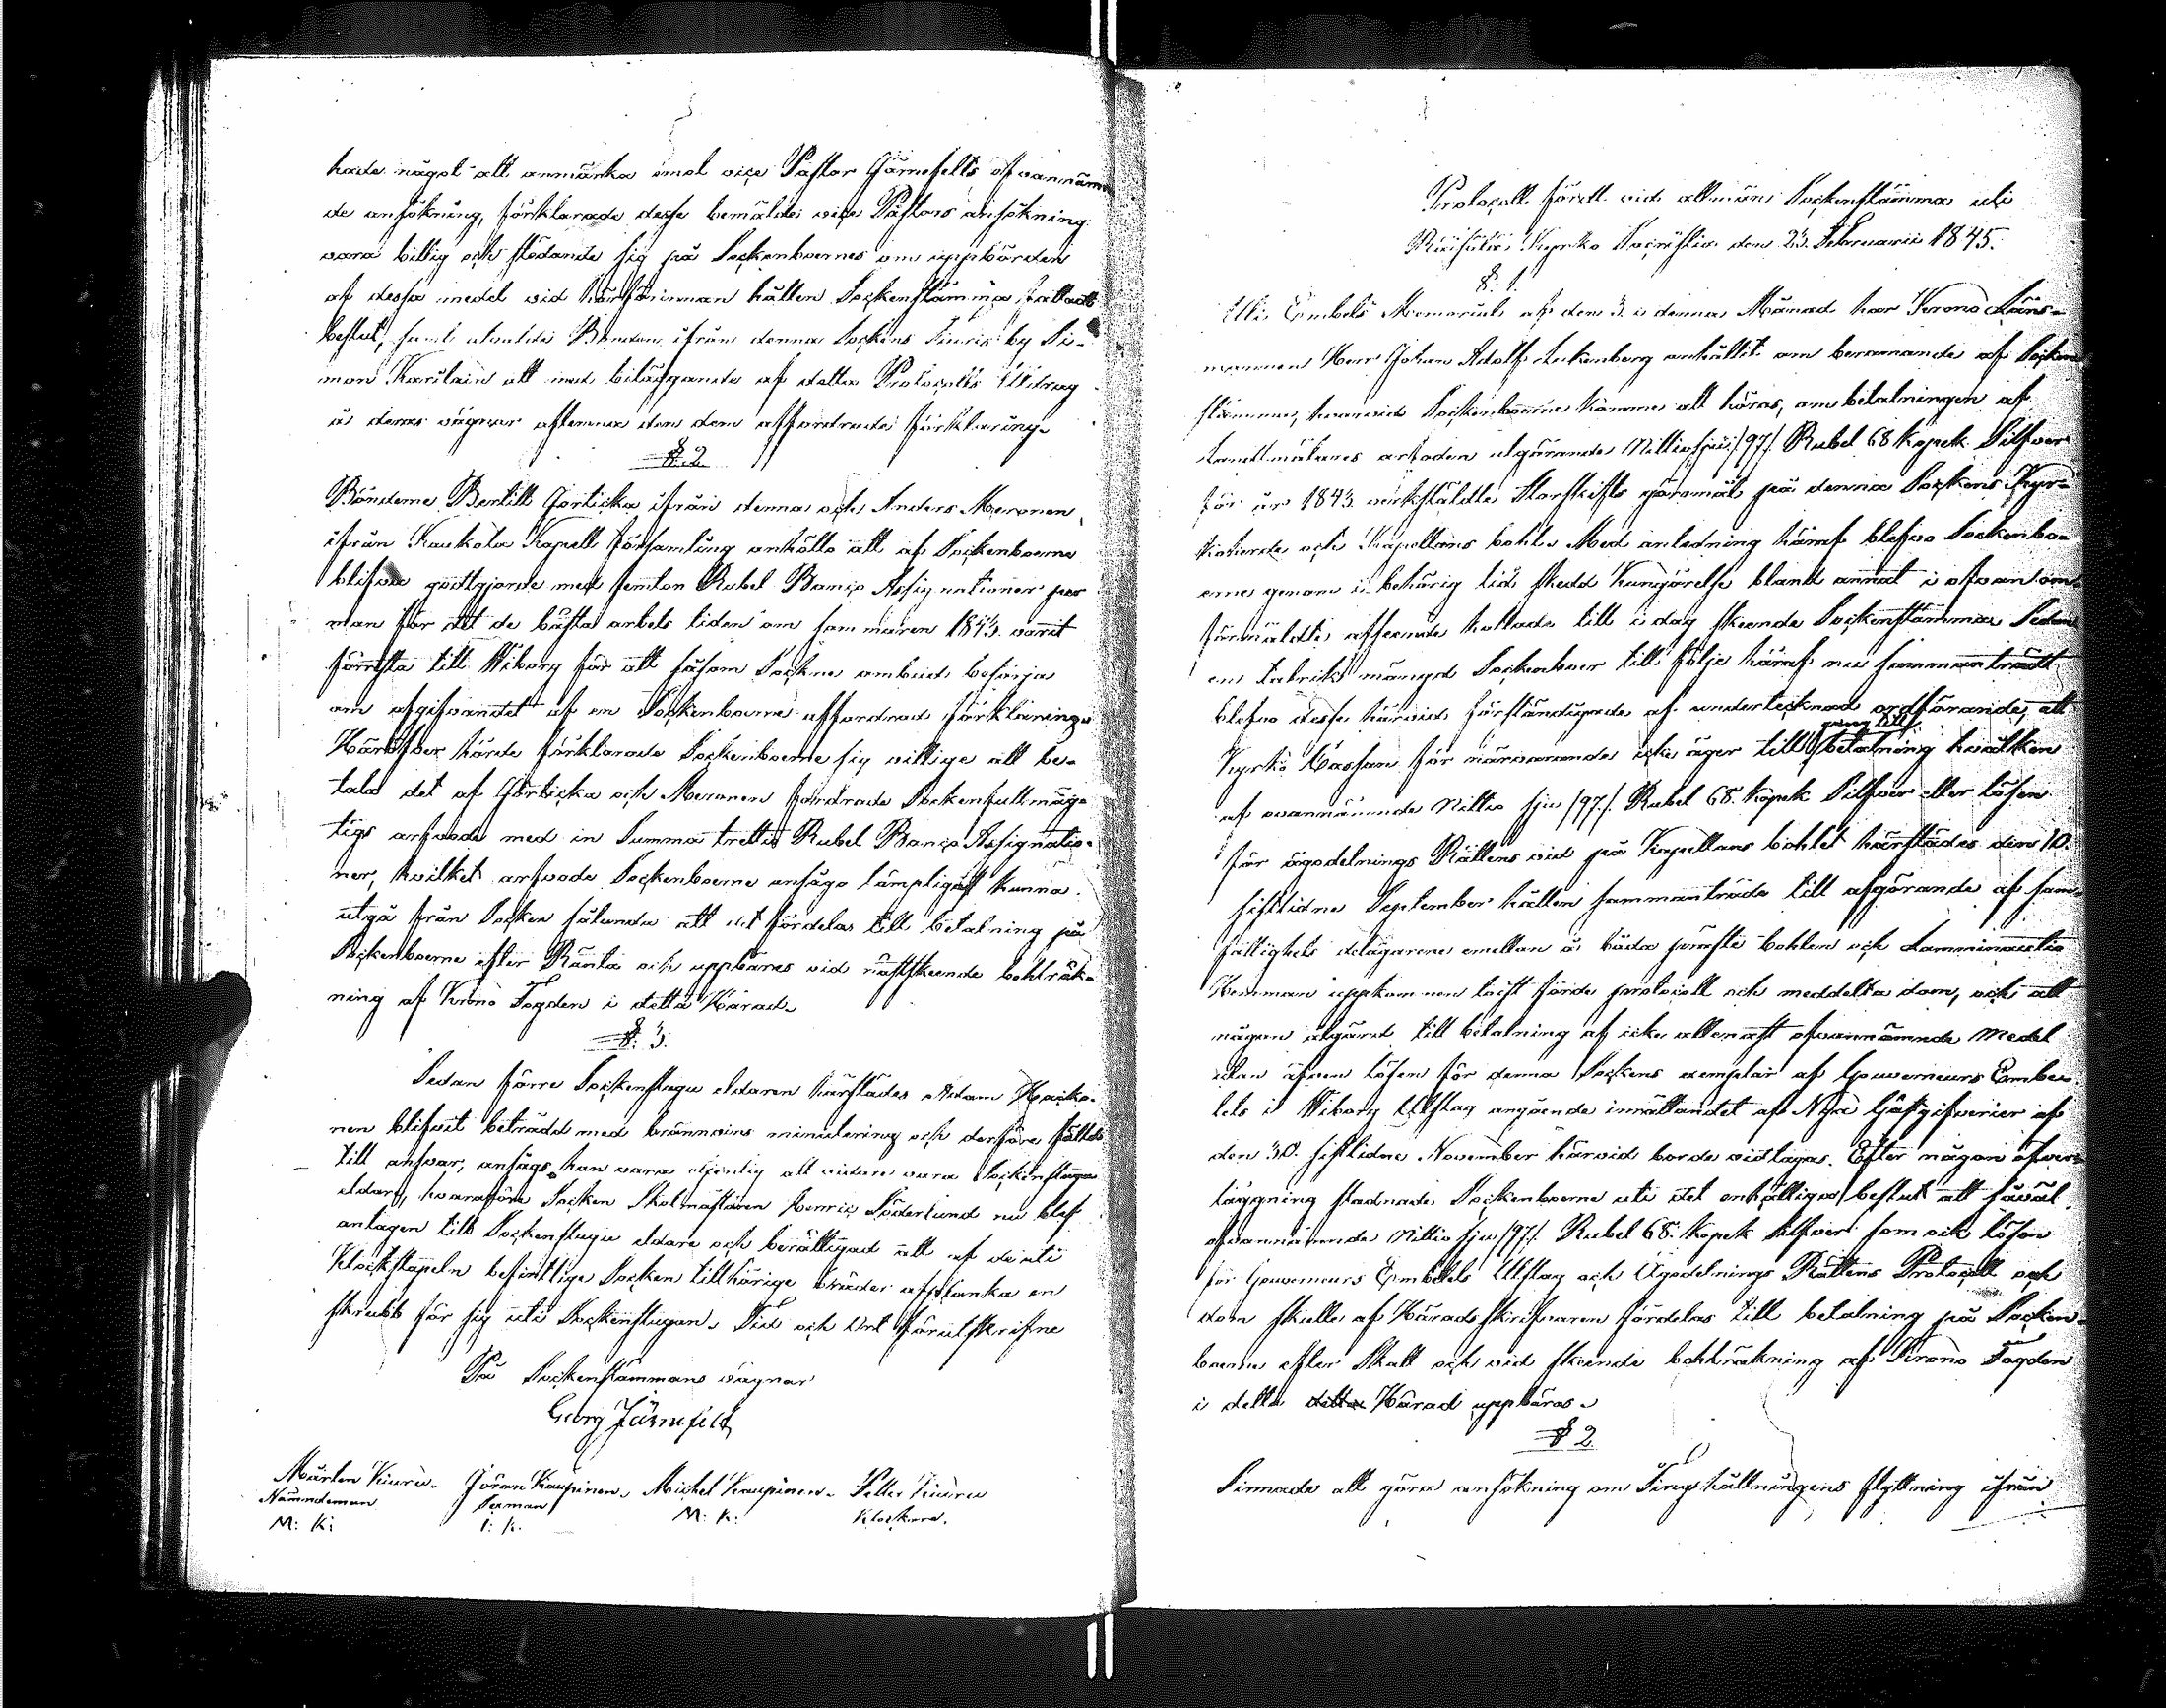 hade något att anmärka emot vice Pastor Järnefelts ofvannämn
de ansökning, förklarade desse bemälde vice Pastors ansökning
vara billig och stödande sig på Sockenboernes om uppbörden
af dessa medel vid härförinnan hållen Sockenstämma fattadt
beslut, samt utvalde Bonden ifrån denna Sockens by Si-
mon Karilain att med biläggande af detta Protocolls Utdrag
å deras vägnar aflemna den dem affordrade förklaring.
§. 2.
Bönderne Bertill Jorticka ifrån denna och Anders Meronen
ifrån Kaukola Kapell församling anhöllo att af Sockenboerne
blifva godtgjorde med femton Rubel Banco Assignationer per
man för det de bästa arbets tiden om sommaren 1843 varit
förresta till Wiborg för att såsom Socknens ombud besörja
om afgifvandet af en Sockenboerne affordrad förklaring.
Häröfver hörde förklarade Sockenboerne sig villige att be-
tala det af Jorticka och Meronen fordrade Sockenfullmäg-
tigs arfvode med in Summa trettio Rubel Banco Assignatio-
ner, hvilket arfvode Sockenboerne ansågo lämpligast kunna
utgå från Socken sålunda att det fördelas till betalning på
Sockenboerne efter Ränta och uppbäres vid nästskeende bohlräk-
ning af Krono Fogden i detta Härad.
§. 3.
Sedan förre Sockenstugu eldaren härstädes Adam Hacko-
nen blifvit beträdd med brännvins minutering och derföre fälld
till ansvar, ansågs han vara otjenlig att vidare vara Sockenstugu
eldare, hvarföre Socken Skolmästaren Henric Söderlund nu blef
antagen till Sockenstugu eldare och berättigad att af de uti
Klockstapeln befintlige Socken tillhörige bräder afplanka en
skrubb för sig uti Sockenstugan. Tid och Ort förutskrifne
På Sockenstämmans vägnar
Georg Järnefelt
Mårten Kiuru. Jöran Kaupinen. Michel Kaupinen. Petter Kiuru
Nämndeman Sexman Klockare.
M: K: J: K. M: K:
Protocoll fördt vid allmän Sockenstämma uti
Räisälä Kyrko Socnstu. den 23. Februarii 1845.
§. 1.
Uti Embets Memorial af den 3 i denna Månad har Krono Läns-
mannen Herr Johan Adolf Lukenberg anhållit om beramande af Socken
stämma, hvarvid Sockenboerne komme att höras, om betalningen af
Landtmätares arfoden utgörande Nittiosju /97/ Rubel 68 Kopek Silfver
för år 1843 verkställdte Storskifts göromål på denna Sockens Kyr-
koherde och Kapellans bohl. Med anledning häraf blefvo Sockenbo-
erne genom i behörig tid skedd Kungörelse bland annat i ofvan om-
förmäldte afseende kallade till i dag skeende Sockenstämma. Sedan
en talrik mängd Sockenboer till följe häraf nu sammanträdt
blefvo desse härvid förständigade af undertecknad ordförande, att
Kyrko Cassan för närvarande icke äger till betalning hvarken
af ovannämnde Nittio sju /97/ Rubel 68. Kopek Silfver eller lösen
för ägodelnings Rättens vid på Kapellans bohlet härstädes den 10.
sistlidne September hållen sammanträde till afgörande af sam-
fällighets delägarene emellan å båda präste bohlen och Lamminautio
Hemman uppkommen tvist förde protocoll och meddelta dom, och att
någon åtgärd till betalning af icke allenast ofvannämnde medel
utan äfven lösen för denna Sockens exemplar af Gouverneurs Embe-
tets i Wiborg Utslag angående inrättandet af Nya Gästgifverier af
den 30. sistlidne November härvid borde vidtagas. Efter någon öfver-
läggning stadnade Sockenboerne uti det enhälliga beslut att såväl
ofvannämnde Nittio sju /97/ Rubel 68. Kopek Silfver som ock lösen
för Gouverneurs Embetets Utslag och Ägodelnings Rättens Protocoll och
dom skulle af Häradsskrifvaren fördelas till betalning på Socken-
boerne efter Skatt och vid skeende bohlräkning af Krono Fogden
i detta Härad uppbäras.
§ 2.
Sinnade att göra ansökning om Tingshållningens flyttning ifrån